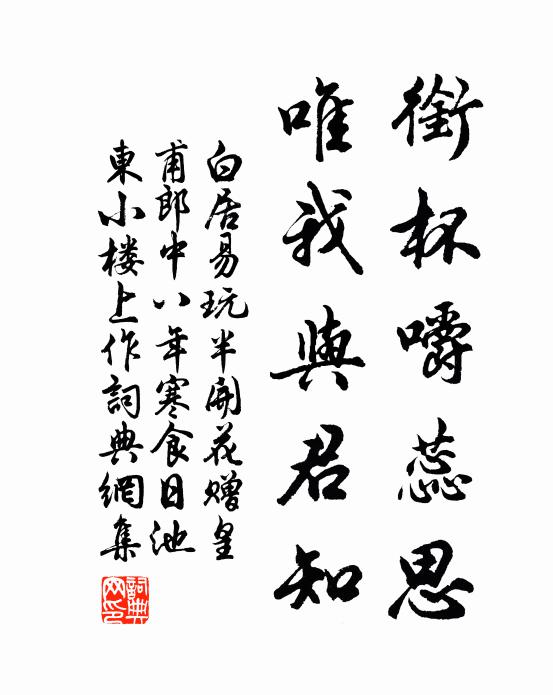 銜杯嚼蕊思
唯我與君知
白居易玩半開花贈皇
甫郎中八年寒食日池
東小楼上作詞典網集
詞典
网印